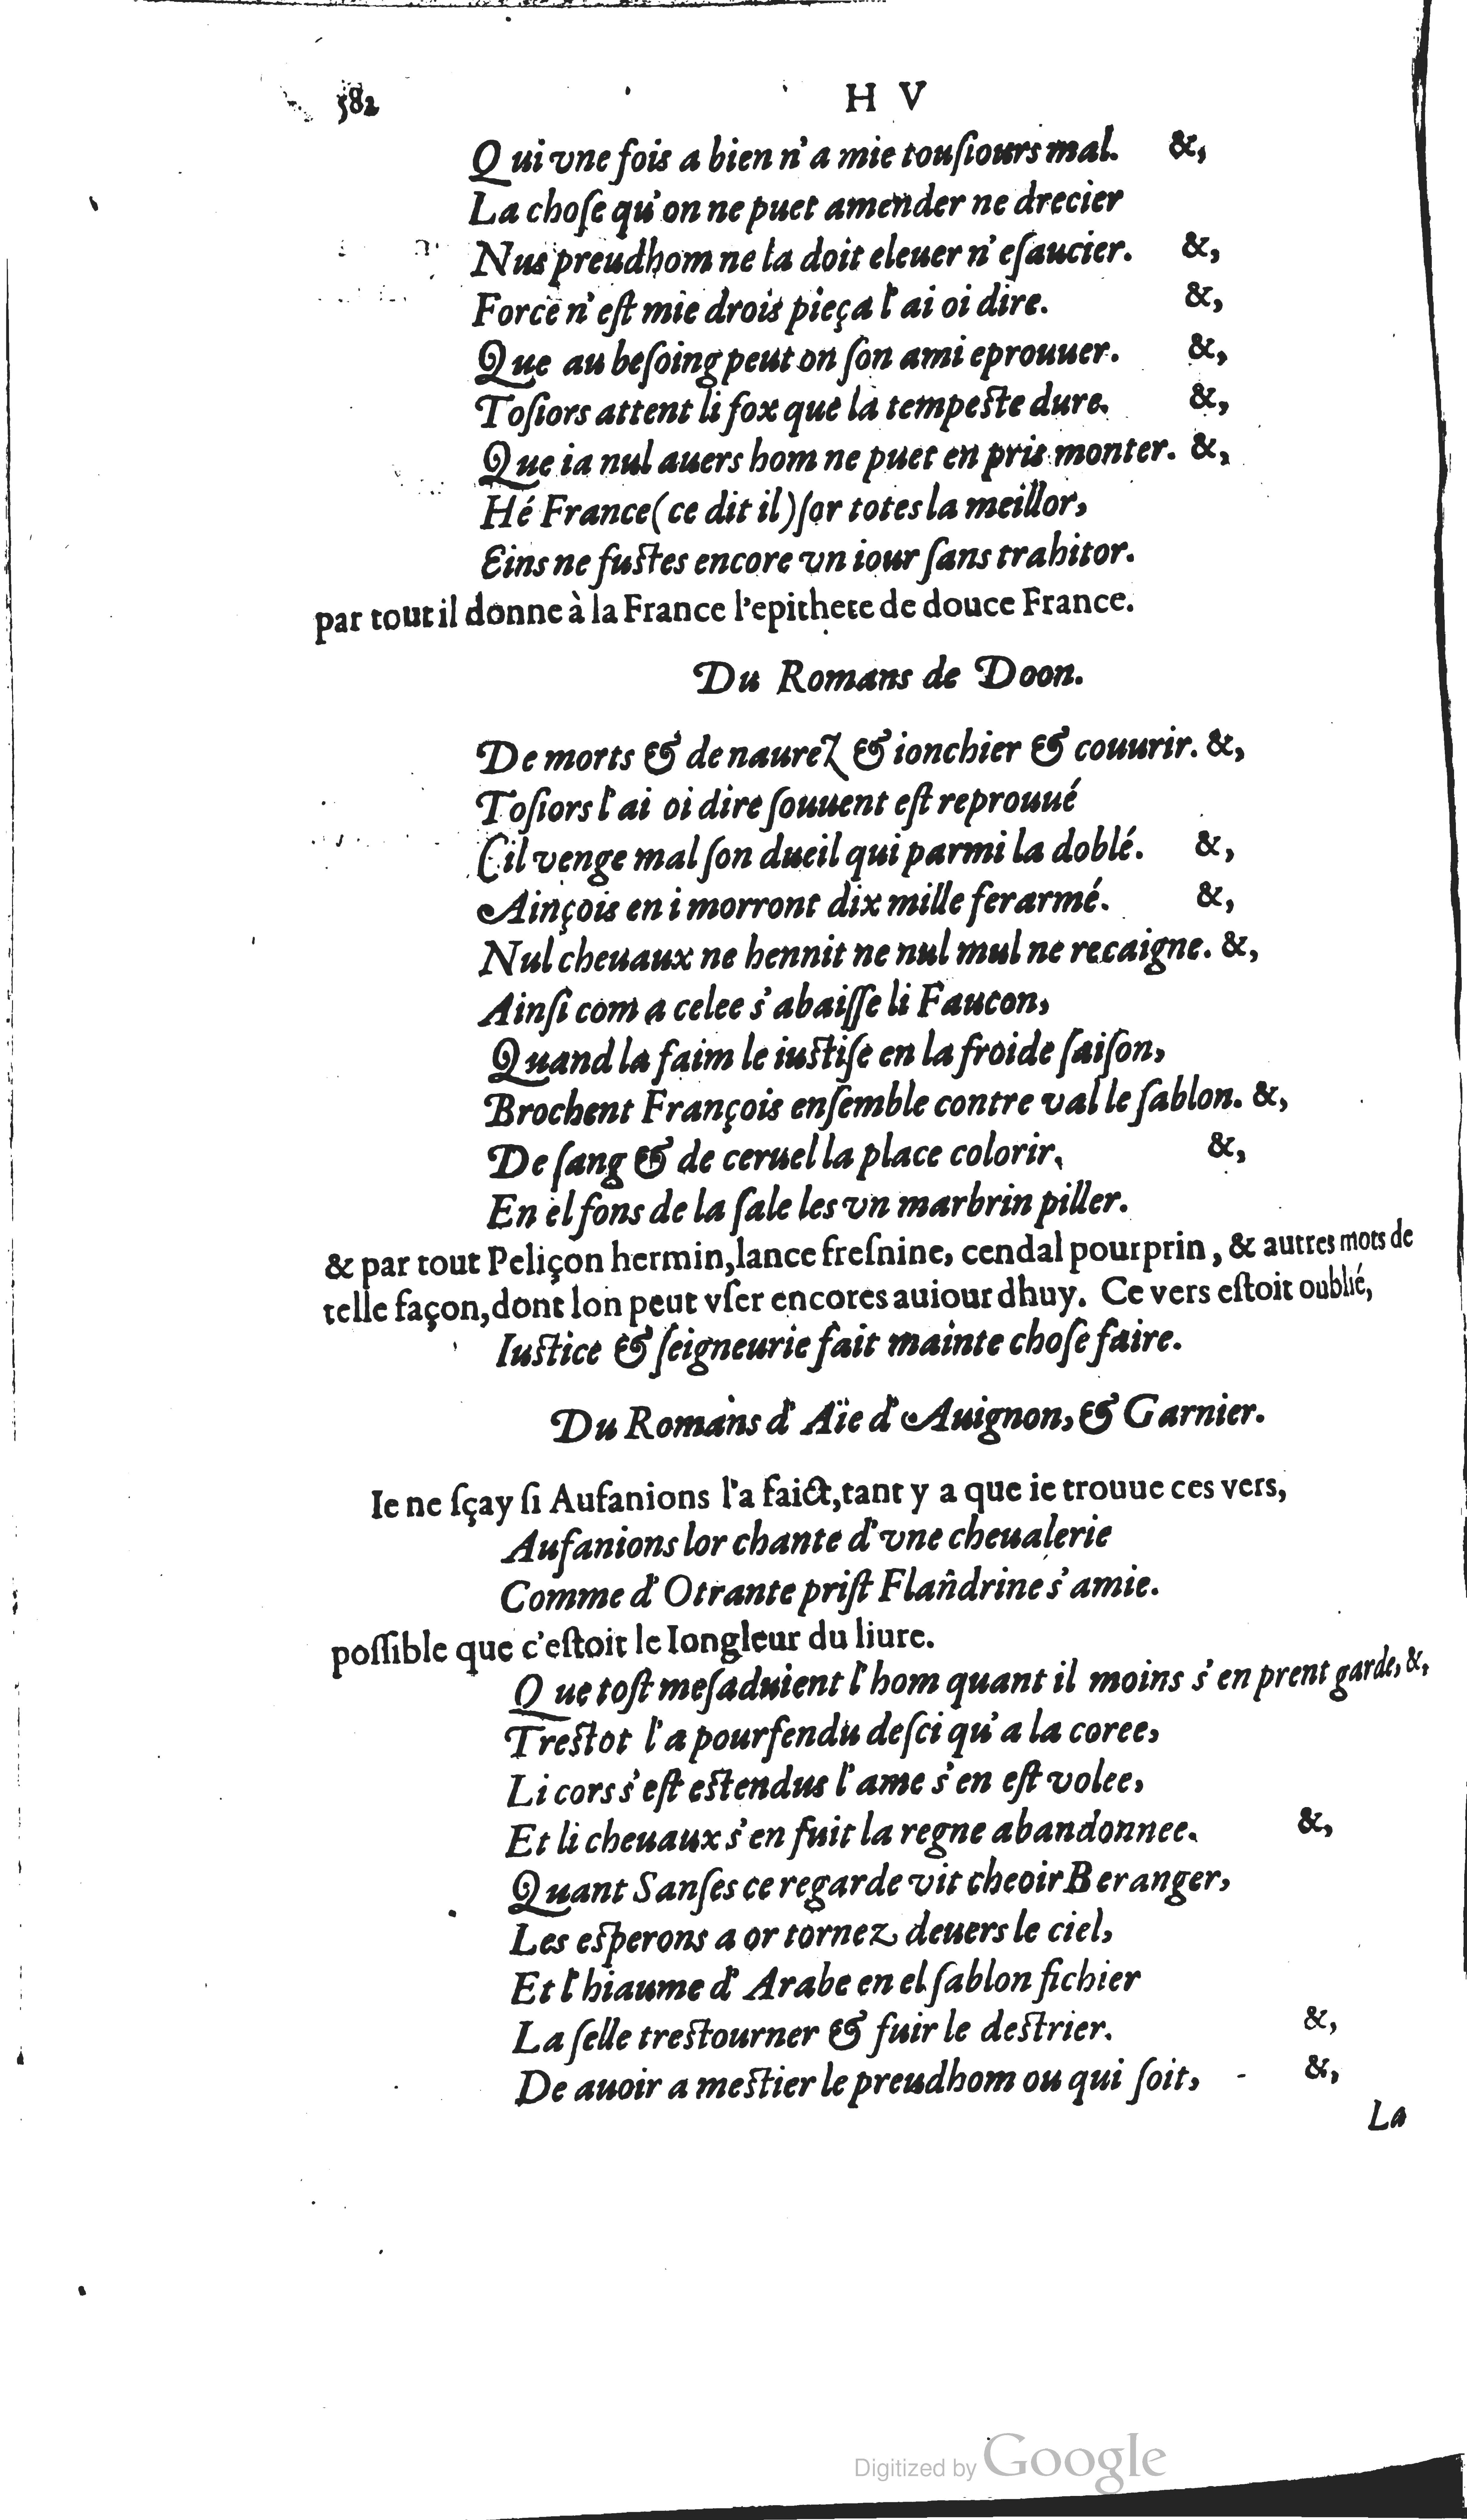 582 H V
Qui vne fois a bien n'a mie touſiours mal. &,
La choſe qu'on ne puet amender ne drecier
Nus preudhom ne la doit eleuer n'eſaucier. &,
Force n'eſt mie drois pieça l'ai oi dire. &,
Que au beſoing peut on ſon ami eprouuer. &,
Toſiors attent li fox que la tempeſte dure. &,
Que ia nul auers hom ne puet en pris monter. &,
Hé France (ce dit il) ſor totes la meillor,
Eins ne fuſtes encore vn iour ſans trahitor.
par tout il donne à la France l'epithete de douce France.
Du Romans de Doon.
De morts & de naurez & ionchier & couurir. &,
Toſiors l'ai oi dire ſouuent eſt reprouué
Cil venge mal ſon dueil qui parmi la doblé. &,
Ainçois en i morront dix mille ferarmé. &,
Nul cheuaux ne hennit ne nul mul ne recaigne. &,
Ainſi com a celee s'abaiſſe li Faucon,
Quand la faim le iuſtiſe en la froide ſaiſon,
Brochent François enſemble contre val le ſablon. &,
De ſang & de ceruel la place colorir, &,
En el fons de la ſale les vn marbrin piller.
& par tout Peliçon hermin, lance freſnine, cendal pourprin, & autres mots de
telle façon, dont lon peut vſer encores auiourdhuy. Ce vers eſtoit oublié,
Iuſtice & ſeigneurie fait mainte choſe faire.
Du Romans d'Aïe d'Auignon, & Garnier.
Ie ne ſçay ſi Aufanions l'a faict, tant y a que ie trouue ces vers,
Aufanions lor chante d'vne cheualerie
Comme d'Otrante priſt Flandrine s'amie.
poſſible que c'eſtoit le Iongleur du liure.
Que toſt meſaduient l'hom quant il moins s'en prent garde, &,
Treſtot l'a pourfendu deſci qu'a la coree,
Li cors s'eſt eſtendus l'ame s'en eſt volee,
Et li cheuaux s'en fuit la regne abandonnee. &,
Quant Sanſes ce regarde vit cheoir Beranger,
Les eſperons a or tornez deuers le ciel,
Et l'hiaume d'Arabe en el ſablon fichier
La ſelle treſtourner & fuir le deſtrier. &,
De auoir a meſtier le preudhom ou qui ſoit, &,
La
Digitized by Google